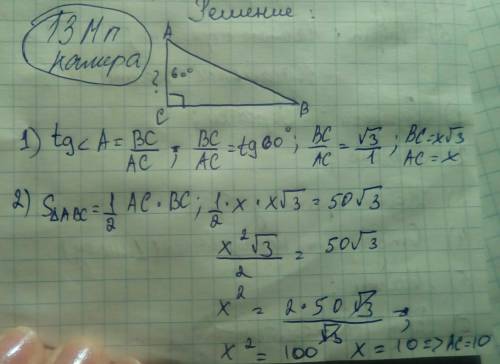 Решение:
13 Мп
камера
A
60°
?
C
B
1) tg < A = BC/AC ; BC/AC = tg 60°; BC/AC = √3/1 ; BC = x√3
AC = x
2) S△ABC = 1/2 AC · BC ; 1/2 · x · x√3 = 50√3
x²√3/2 = 50√3
x² = 2·50√3/√3 ;
x² = 100 x = 10 => AC = 10